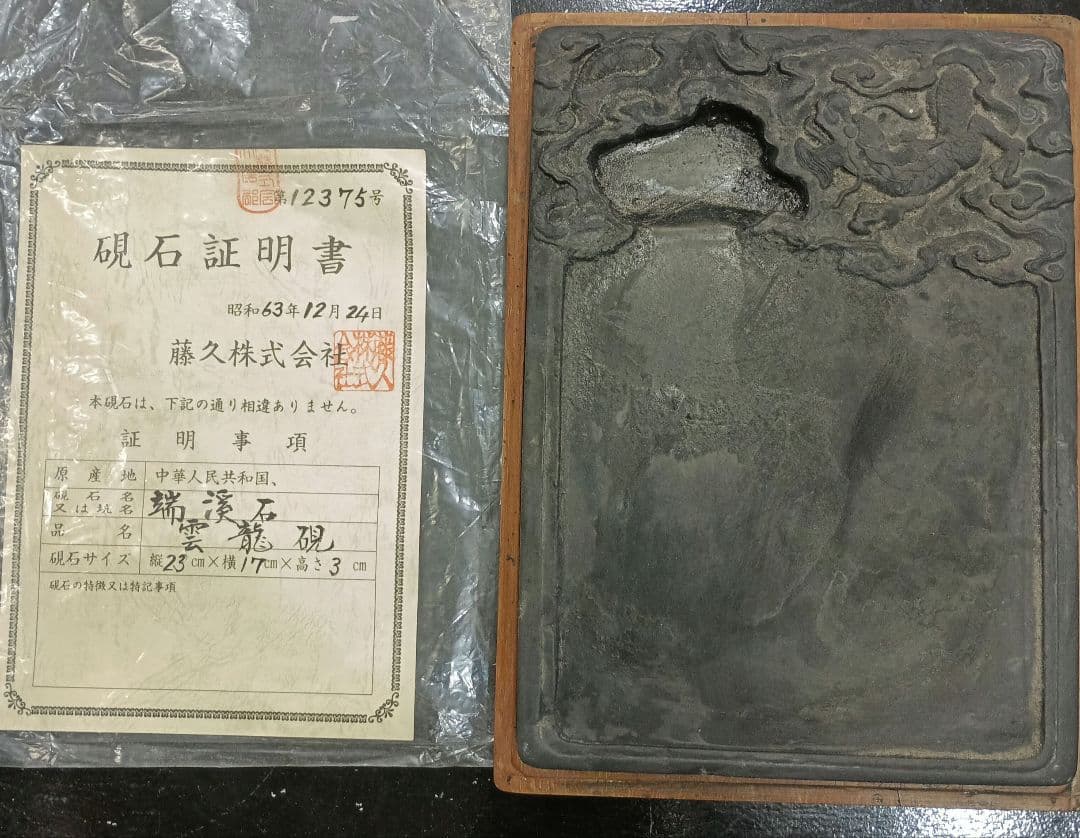 第12375号
硯石証明書
昭和63年12月24日
藤久株式会社
本硯石は、下記の通り相違ありません。
証明事項
原産地 中華人民共和国、
硯石名又は坑名 端溪石
品名 雲龍硯
硯石サイズ 縦23cm×横17cm×高さ3cm
硯石の特徴又は特記事項